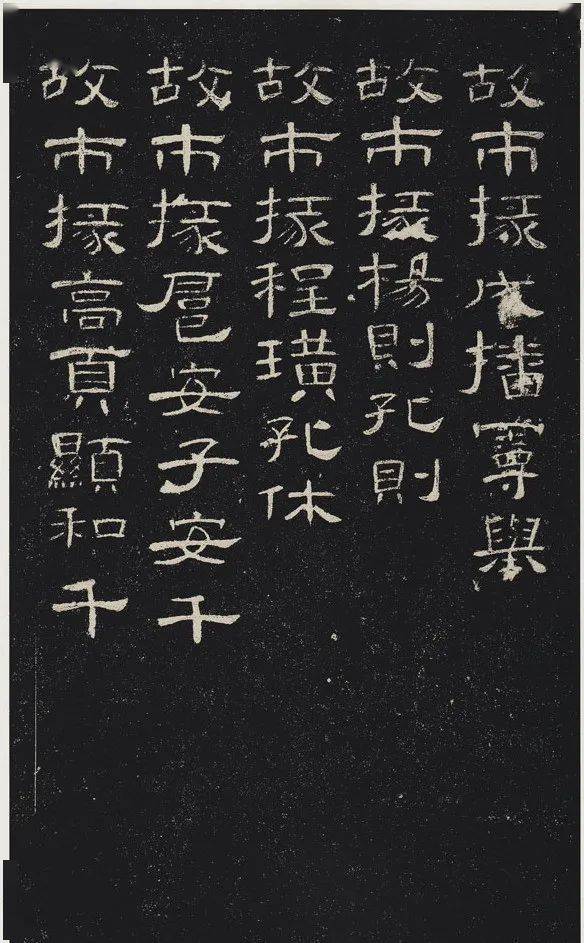 故市掾成播舉
故市掾楊則孔則
故市掾程璜孔休
故市掾扈安子安千
故市掾高頁顯和千